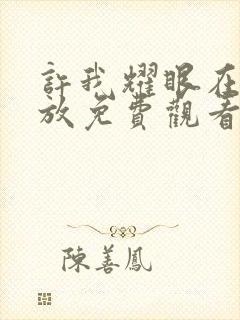 許我耀眼在
放免費觀看
陳善鳳